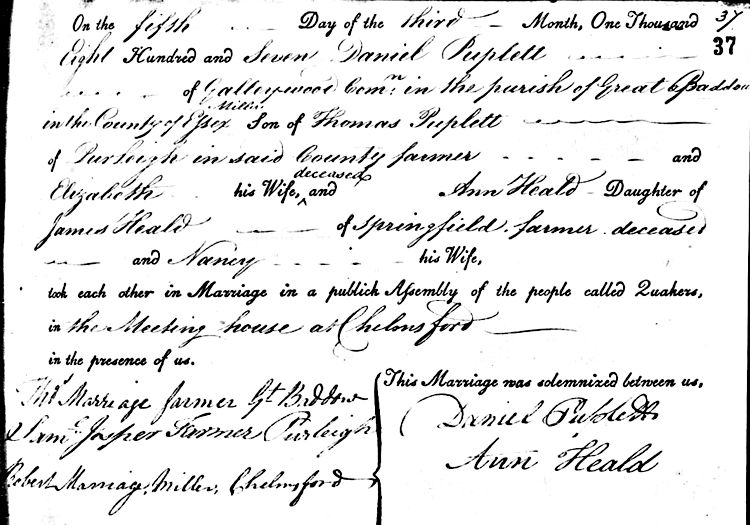 37
On the fifth Day of the third Month, One Thousand
37
Eight Hundred and Seven Daniel Puplett
of Galleywood Comn. in the parish of Great Baddow
Miller
in the County of Essex Son of Thomas Puplett
of Purleigh in said County farmer and
deceased
Elizabeth his Wife, ^ and Ann Heald Daughter of
James Heald of Springfield farmer deceased
and Nancy his Wife,
took each other in Marriage in a publick Assembly of the people called Quakers,
in the Meeting house at Chelmsford
in the presence of us.
This Marriage was solemnized between us,
Thos. Marriage farmer Gt Baddow
Saml. Jasper Farmer Purleigh
Robert Marriage, Miller, Chelmsford
Daniel Puplett
Ann Heald